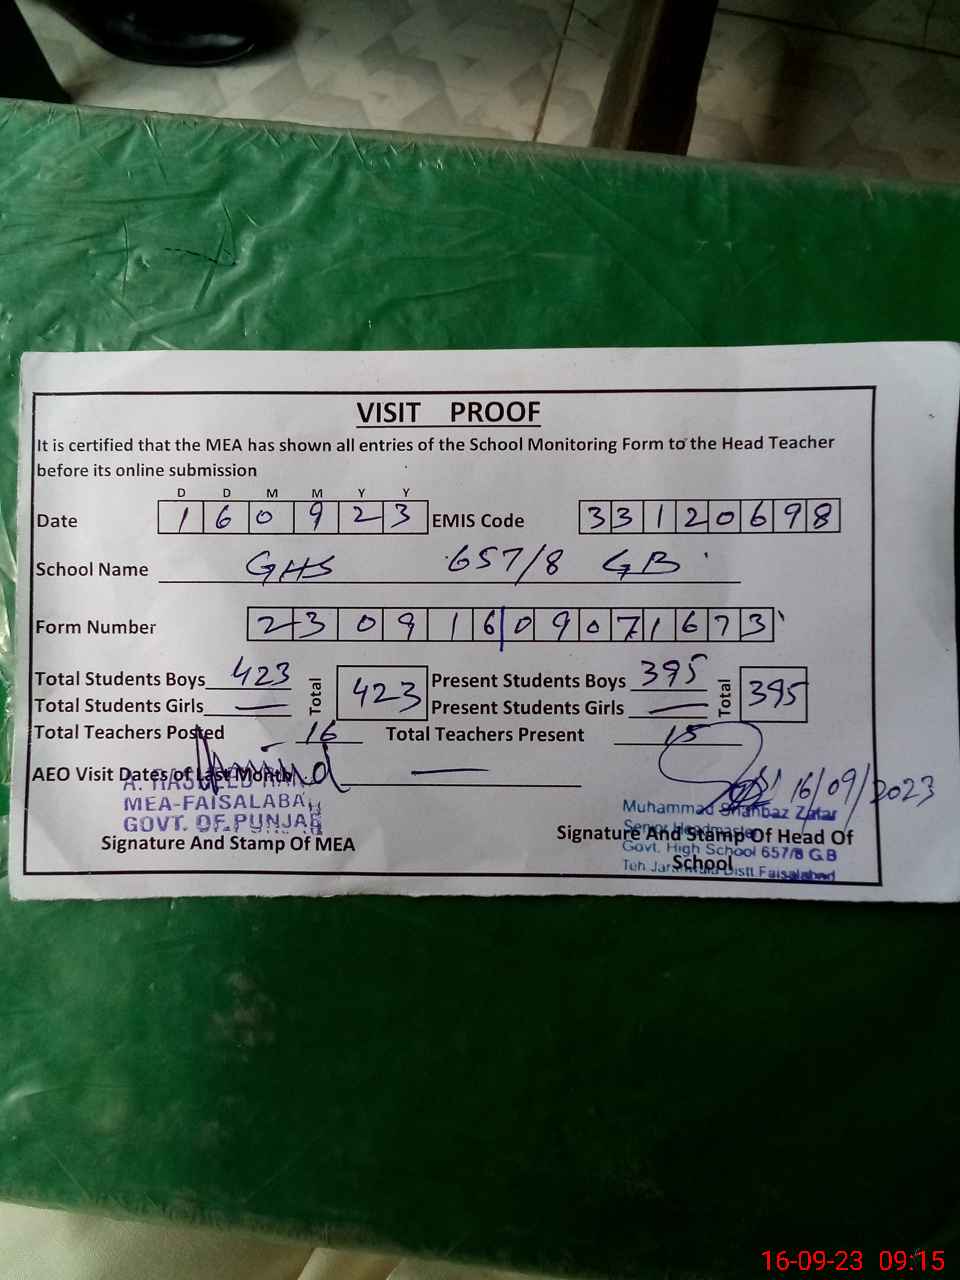 VISIT PROOF
It is certified that the MEA has shown all entries of the School Monitoring Form to the Head Teacher
before its online submission
D D M M Y Y
Date 1 6 0 9 2 3 EMIS Code 3 3 1 2 0 6 9 8
School Name GHS 657/8 GB
Form Number 2 3 0 9 1 6 0 9 0 7 1 6 7 3
Total Students Boys 423 Total 423 Present Students Boys 395 Total 395
Total Students Girls — Present Students Girls —
Total Teachers Posted 16 Total Teachers Present 15
AEO Visit Dates of Last Month —
16/09/2023
A. RASHEED
MEA-FAISALABAD
GOVT. OF PUNJAB
Signature And Stamp Of MEA
Muhammad Shahbaz Zafar
Senior Headmaster
Govt. High School 657/8 G.B
Teh Jaranwala Distt Faisalabad
Signature And Stamp Of Head Of
School
16-09-23 09:15